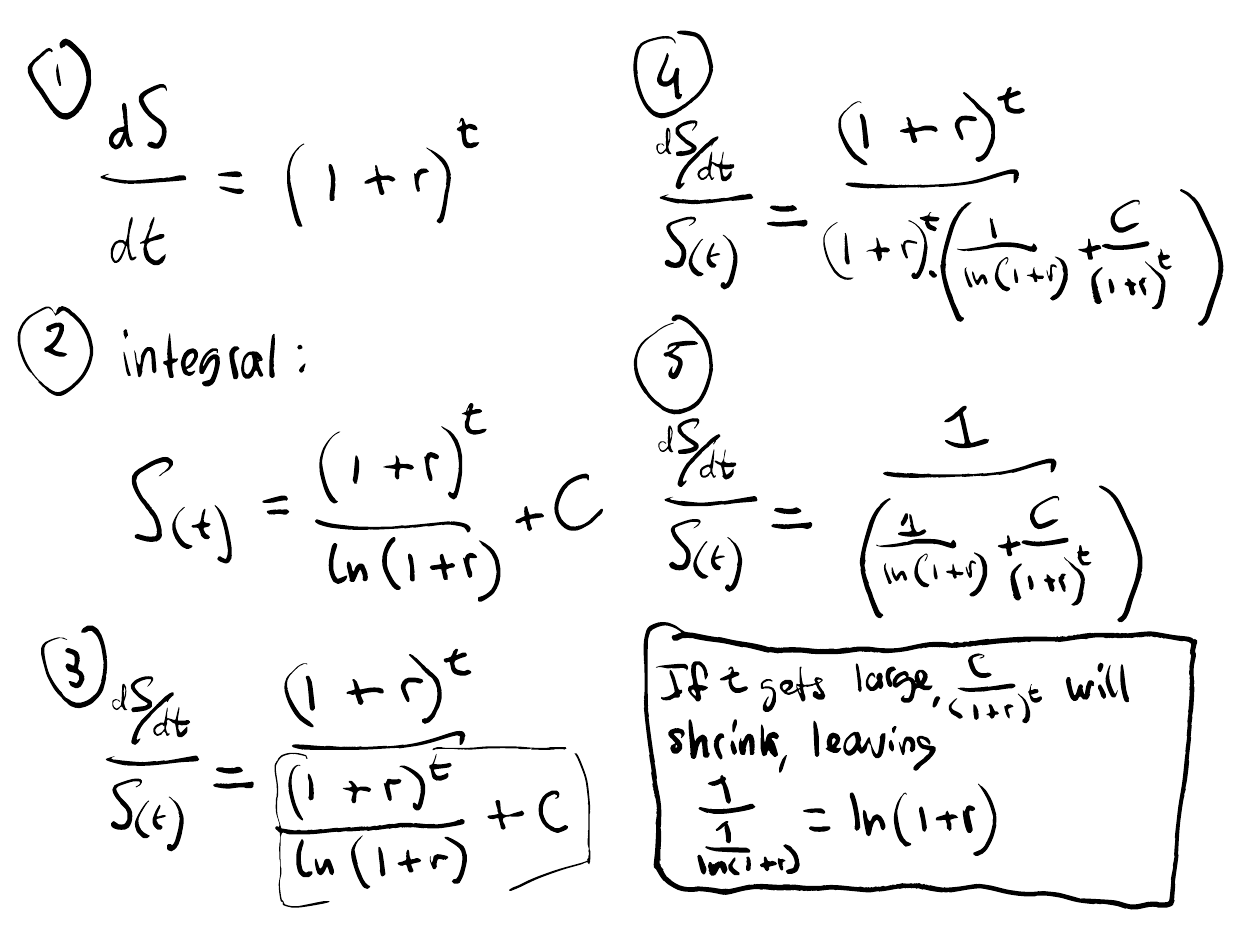 ①
dS/dt = (1 + r)^t
② integral:
S(t) = (1 + r)^t / ln(1+r) + C
③
(dS/dt) / S(t) = (1 + r)^t / ((1 + r)^t / ln(1+r) + C)
④
(dS/dt) / S(t) = (1 + r)^t / ((1 + r)^t · (1 / ln(1+r) + C / (1+r)^t))
⑤
(dS/dt) / S(t) = 1 / (1 / ln(1+r) + C / (1+r)^t)
If t gets large, C / (1+r)^t will
shrink, leaving
1 / (1 / ln(1+r)) = ln(1+r)